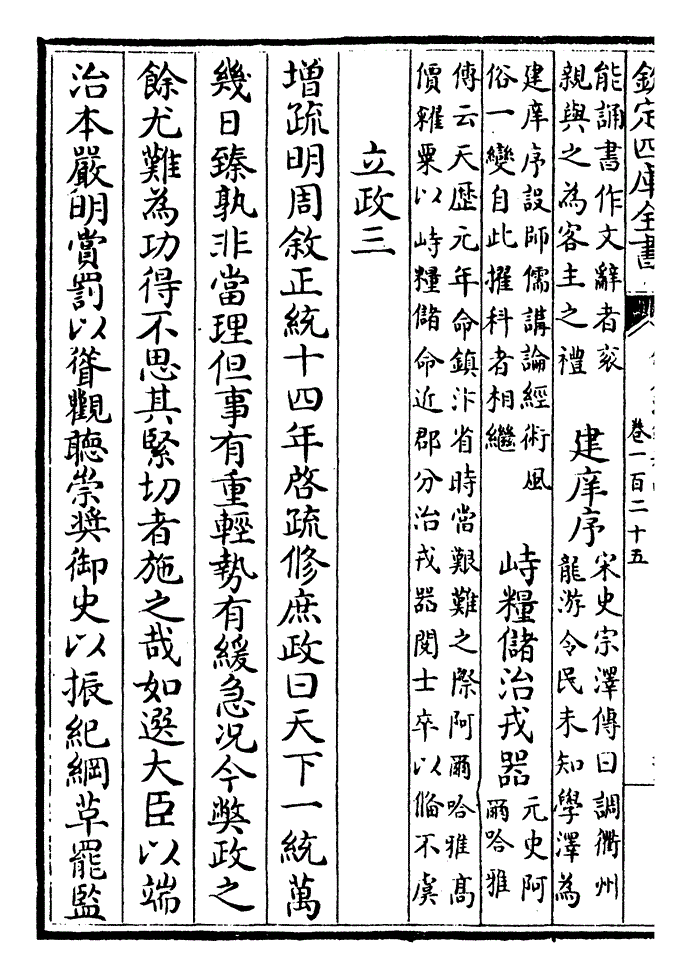 欽定四庫全書
卷一百二十五
能誦書作文辭者亥
親與之為客主之禮
建庠序
宋史宗澤傳曰調衢州
龍游令民未知學澤為
建庠序設師儒講論經術風
俗一變自此擢科者相繼
峙糧儲治戎器
元史阿
爾哈雅
傳云天歷元年命鎮汴省時當艱難之際阿爾哈雅髙
價糴粟以峙糧儲命近郡分治戎器閱士卒以備不虞
立政三
增疏明周敘正統十四年啓疏修庶政曰天下一統萬
幾日臻孰非當理但事有重輕勢有緩急况今獘政之
餘尤難為功得不思其緊切者施之哉如選大臣以端
治本嚴明賞罰以聳觀聽崇奬御史以振紀綱革罷監